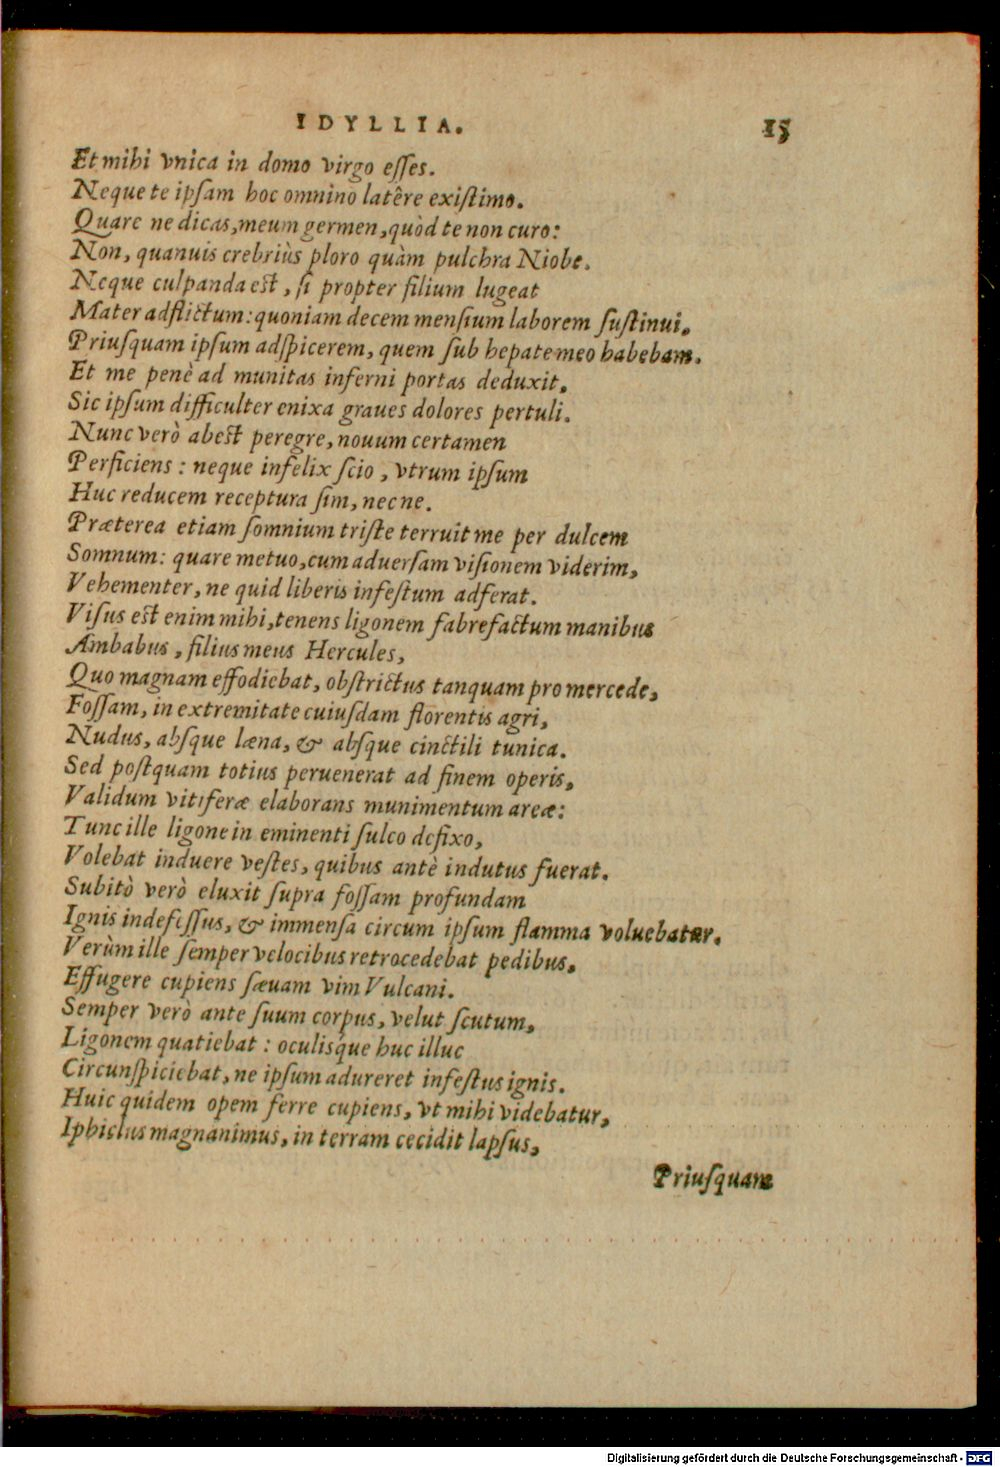 IDYLLIA. 15
Et mihi vnica in domo virgo eſſes.
Neque te ipſam hoc omnino latêre exiſtimo.
Quare ne dicas, meum germen, quòd te non curo:
Non, quanuis crebriùs ploro quàm pulchra Niobe.
Neque culpanda est, ſi propter filium lugeat
Mater adflictum: quoniam decem menſium laborem ſuſtinui,
Priuſquam ipſum adſpicerem, quem ſub hepate meo habebam.
Et me penè ad munitas inferni portas deduxit.
Sic ipſum difficulter enixa graues dolores pertuli.
Nunc verò abest peregre, nouum certamen
Perficiens: neque infelix ſcio, vtrum ipſum
Huc reducem receptura ſim, necne.
Præterea etiam ſomnium triſte terruit me per dulcem
Somnum: quare metuo, cum aduerſam viſionem viderim,
Vehementer, ne quid liberis infeſtum adferat.
Viſus est enim mihi, tenens ligonem fabrefactum manibus
Ambabus, filius meus Hercules,
Quo magnam effodiebat, obſtrictus tanquam pro mercede,
Foſſam, in extremitate cuiuſdam florentis agri,
Nudus, abſque læna, & abſque cinctili tunica.
Sed poſtquam totius peruenerat ad finem operis,
Validum vitiferæ elaborans munimentum areæ:
Tunc ille ligone in eminenti ſulco defixo,
Volebat induere veſtes, quibus antè indutus fuerat.
Subitò verò eluxit ſupra foſſam profundam
Ignis indefeſſus, & immenſa circum ipſum flamma voluebatur.
Verùm ille ſemper velocibus retrocedebat pedibus,
Effugere cupiens ſæuam vim Vulcani.
Semper verò ante ſuum corpus, velut ſcutum,
Ligonem quatiebat: oculisque huc illuc
Circunſpiciebat, ne ipſum adureret infeſtus ignis.
Huic quidem opem ferre cupiens, vt mihi videbatur,
Iphiclus magnanimus, in terram cecidit lapſus,
Priuſquam
Digitalisierung gefördert durch die Deutsche Forschungsgemeinschaft - DFG